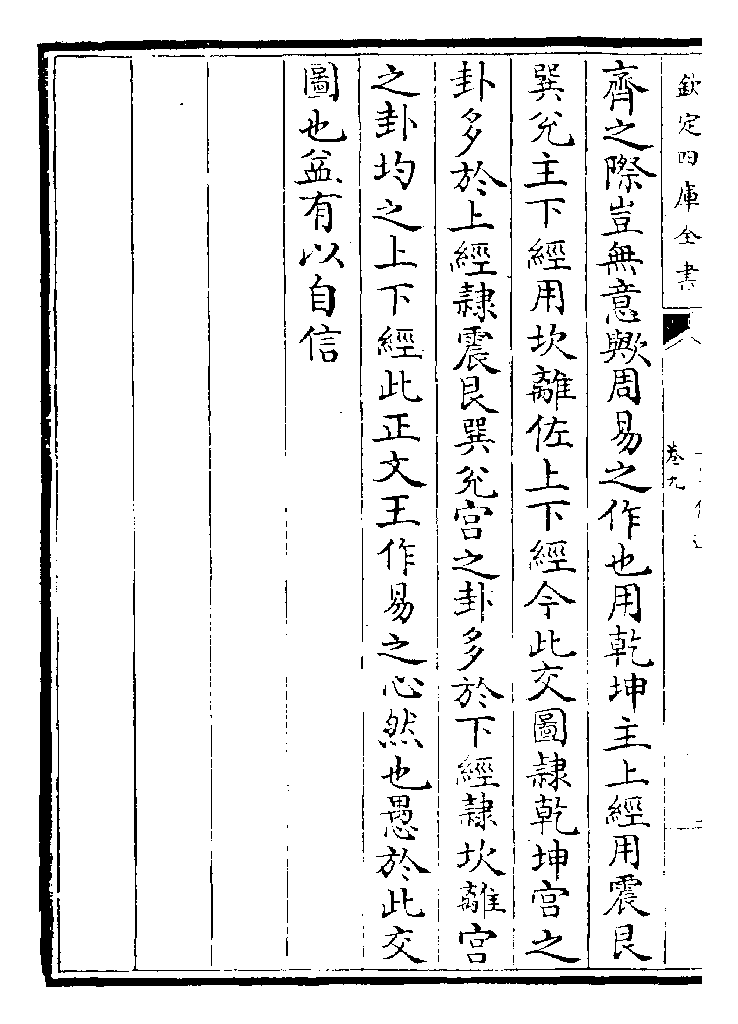 欽定四庫全書
卷九
齊之際豈無意歟周易之作也用乾坤主上經用震艮
巽兊主下經用坎離佐上下經今此交圖隷乾坤宫之
卦多於上經隷震艮巽兊宫之卦多於下經隷坎離宫
之卦均之上下經此正文王作易之心然也愚於此交
圖也益有以自信